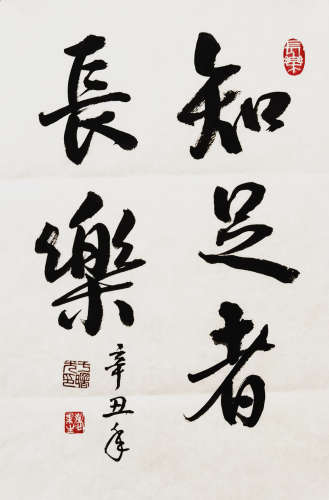 知足者
長樂
辛丑年
長樂